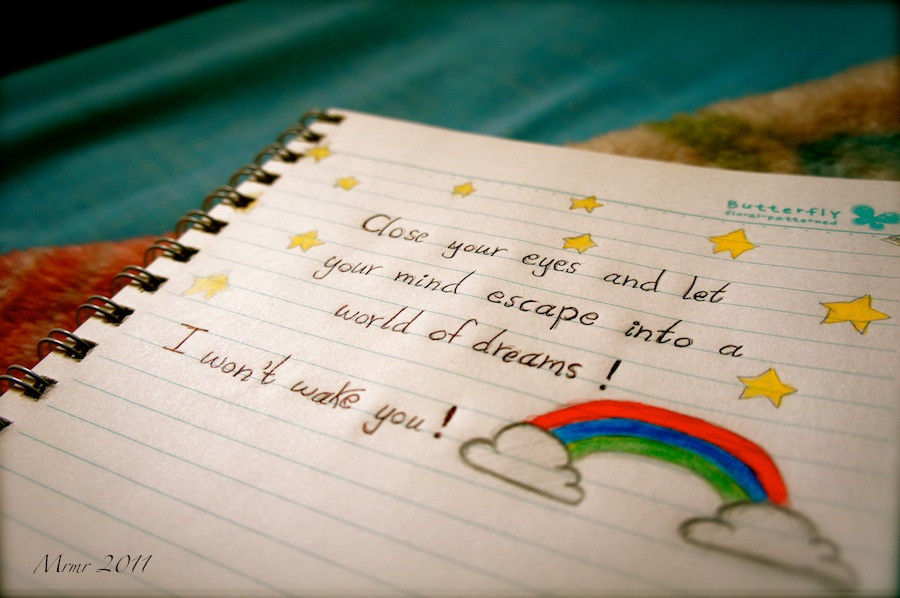 Butterfly
floral-patterned
Close your eyes and let
your mind escape into a
world of dreams !
I won't wake you !
Mrmr 2011